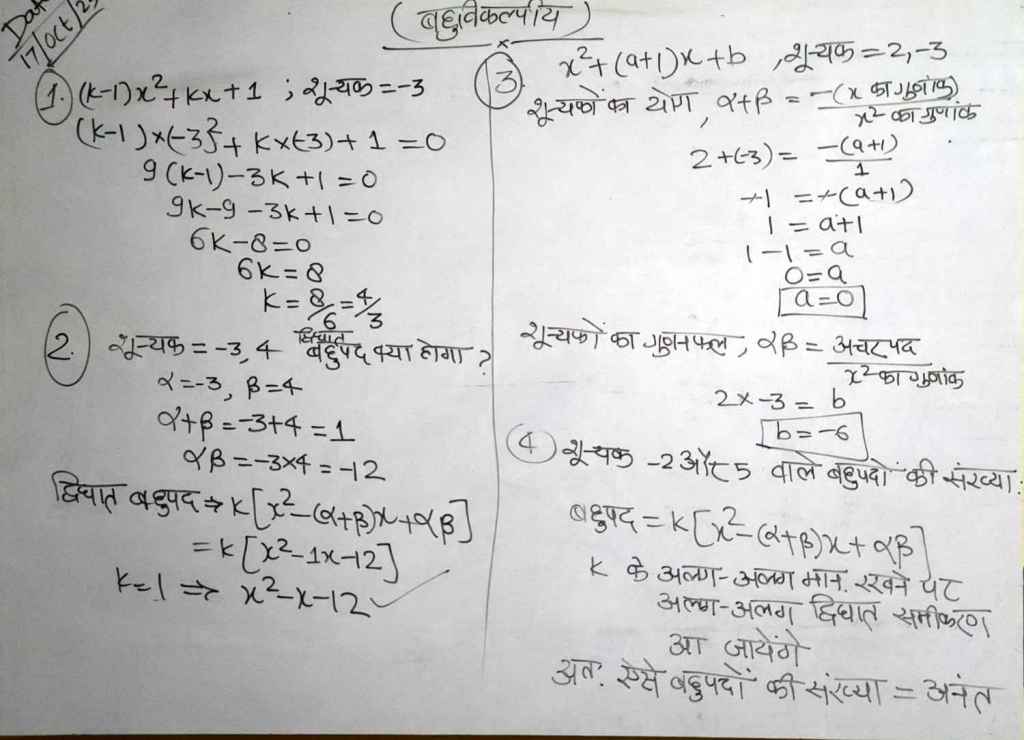 Dat
17/oct/23
(बहुविकल्पीय)
1. (k-1)x²+kx+1 ; शून्यक=-3
(k-1)×(-3)²+k×(-3)+1=0
9(k-1)-3k+1=0
9k-9-3k+1=0
6k-8=0
6k=8
k=8/6=4/3
2. शून्यक=-3,4 द्विघात बहुपद क्या होगा?
α=-3, β=4
α+β=-3+4=1
αβ=-3×4=-12
द्विघात बहुपद⇒k[x²-(α+β)x+αβ]
=k[x²-1x-12]
k=1⇒x²-x-12✓
3 x²+(a+1)x+b ,शून्यक=2,-3
शून्यकों का योग, α+β=-(x का गुणांक)/x² का गुणांक
2+(-3)=-(a+1)/1
-1=-(a+1)
1=a+1
1-1=a
0=a
a=0
शून्यकों का गुणनफल, αβ=अचर पद/x² का गुणांक
2×-3=b
b=-6
4 शून्यक -2 और 5 वाले बहुपदों की संख्या:
बहुपद=k[x²-(α+β)x+αβ]
k के अलग-अलग मान रखने पर
अलग-अलग द्विघात समीकरण
आ जायेंगे
अतः ऐसे बहुपदों की संख्या=अनंत